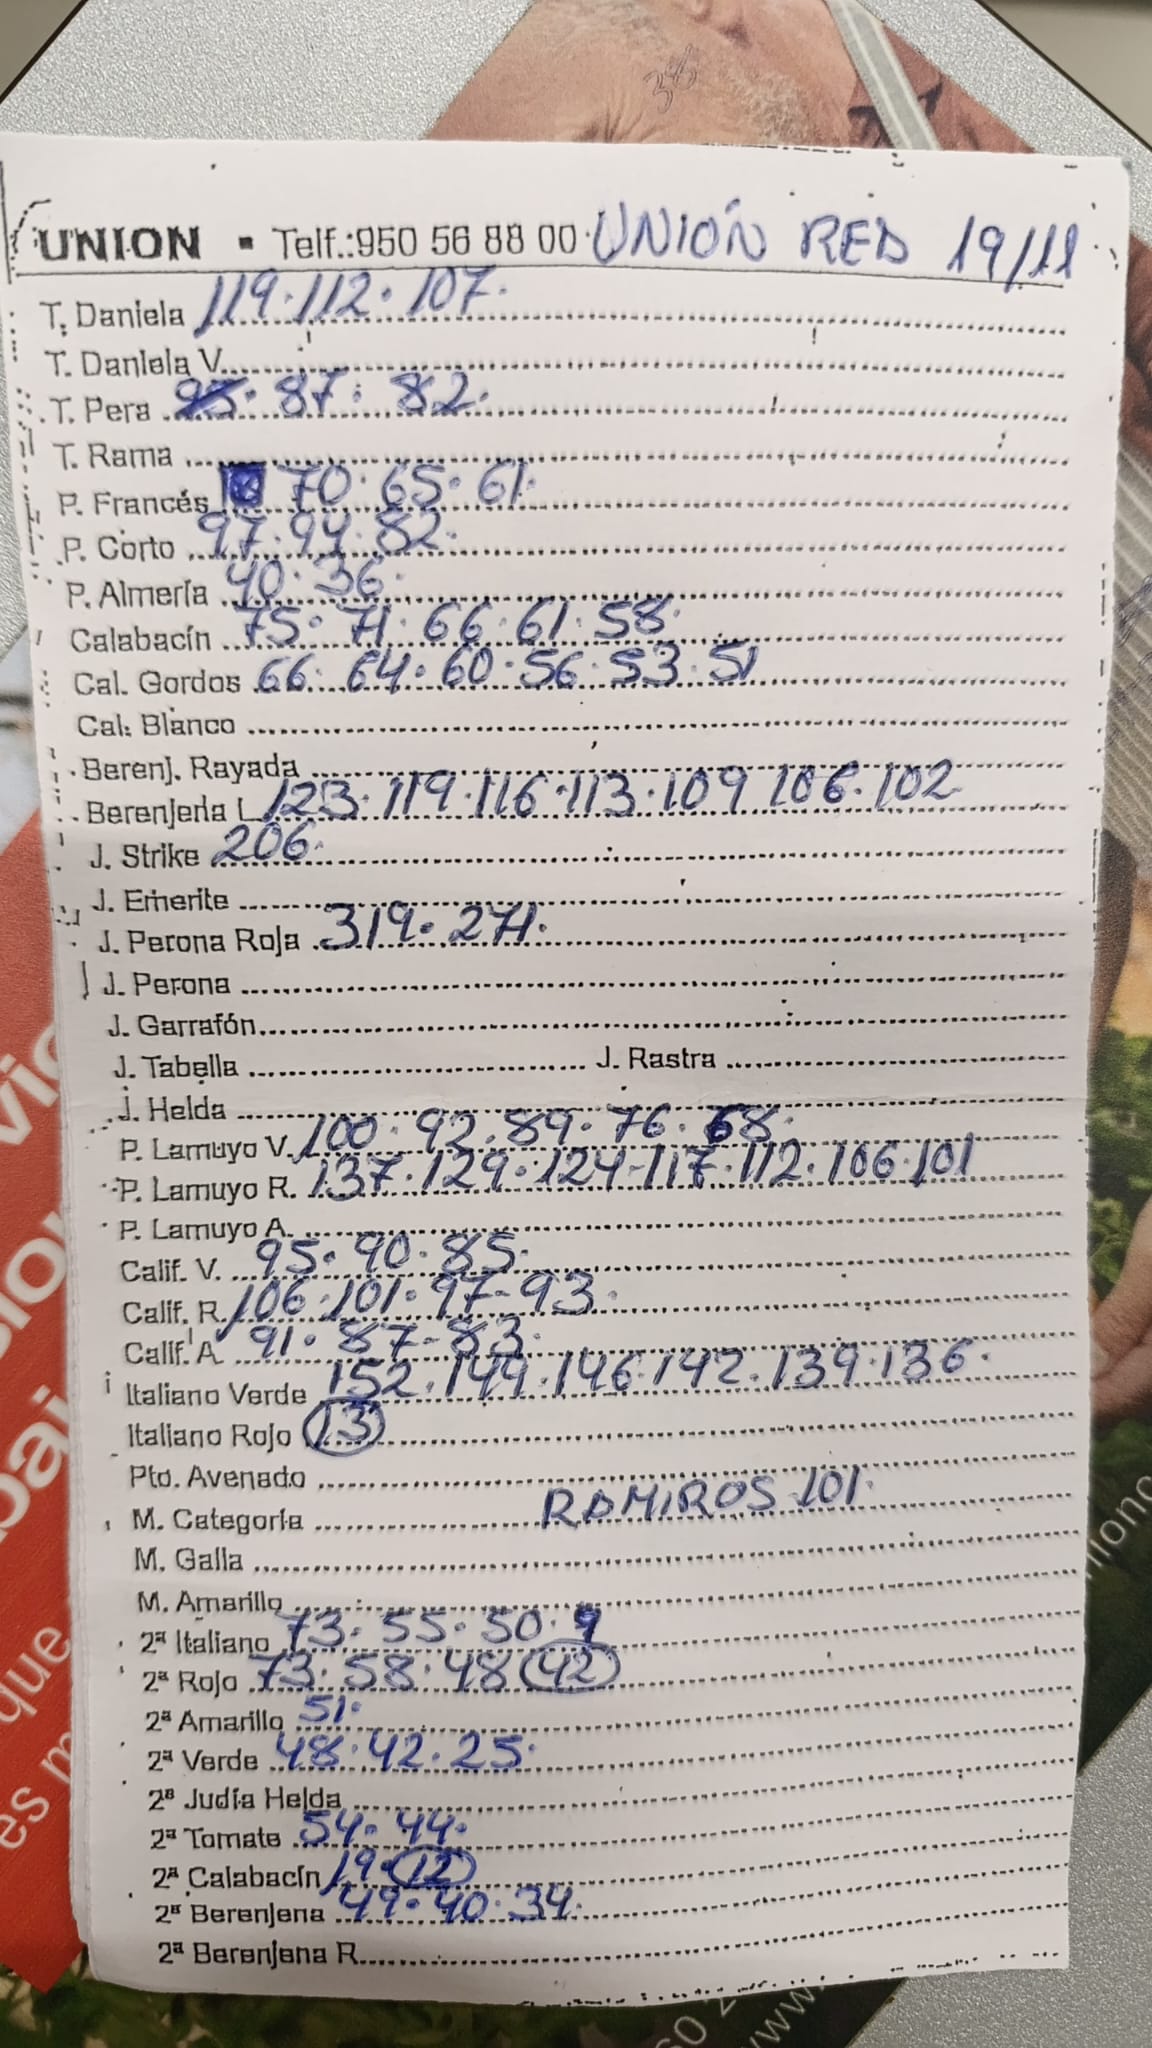 38
UNION • Telf.:950 56 88 00 UNIÓN RED 19/11
T. Daniela 119.112.107.
T. Daniela V.
T. Pera 87.82.
T. Rama
P. Francés 70.65.61.
P. Corto 97.94.82.
P. Almería 40.36.
Calabacín 75.71.66.61.58.
Cal. Gordos 66.64.60.56.53.51
Cal. Blanco
Berenj. Rayada
Berenjena L. 123.119.116.113.109 106.102
J. Strike 206.
J. Emerite
J. Perona Roja 319.271.
J. Perona
J. Garrafón
J. Tabella J. Rastra
J. Helda
P. Lamuyo V. 100.92.89.76.68.
P. Lamuyo R. 137.129.124-117.112.106.101
P. Lamuyo A.
Calif. V. 95.90.85.
Calif. R. 106.101.97-93.
Calif. A 91.87-83.
Italiano Verde 152.149.146.142.139.136.
Italiano Rojo 13
Pto. Avenado
M. Categoría RAMIROS 101.
M. Galla
M. Amarillo
2ª Italiano 73.55.50.
2ª Rojo 73.58.48 42
2ª Amarillo 51.
2ª Verde 48.42.25.
2ª Judía Helda
2ª Tomate 54.44.
2ª Calabacín 19.12
2ª Berenjena 49.40.34.
2ª Berenjena R.
que
es
www.